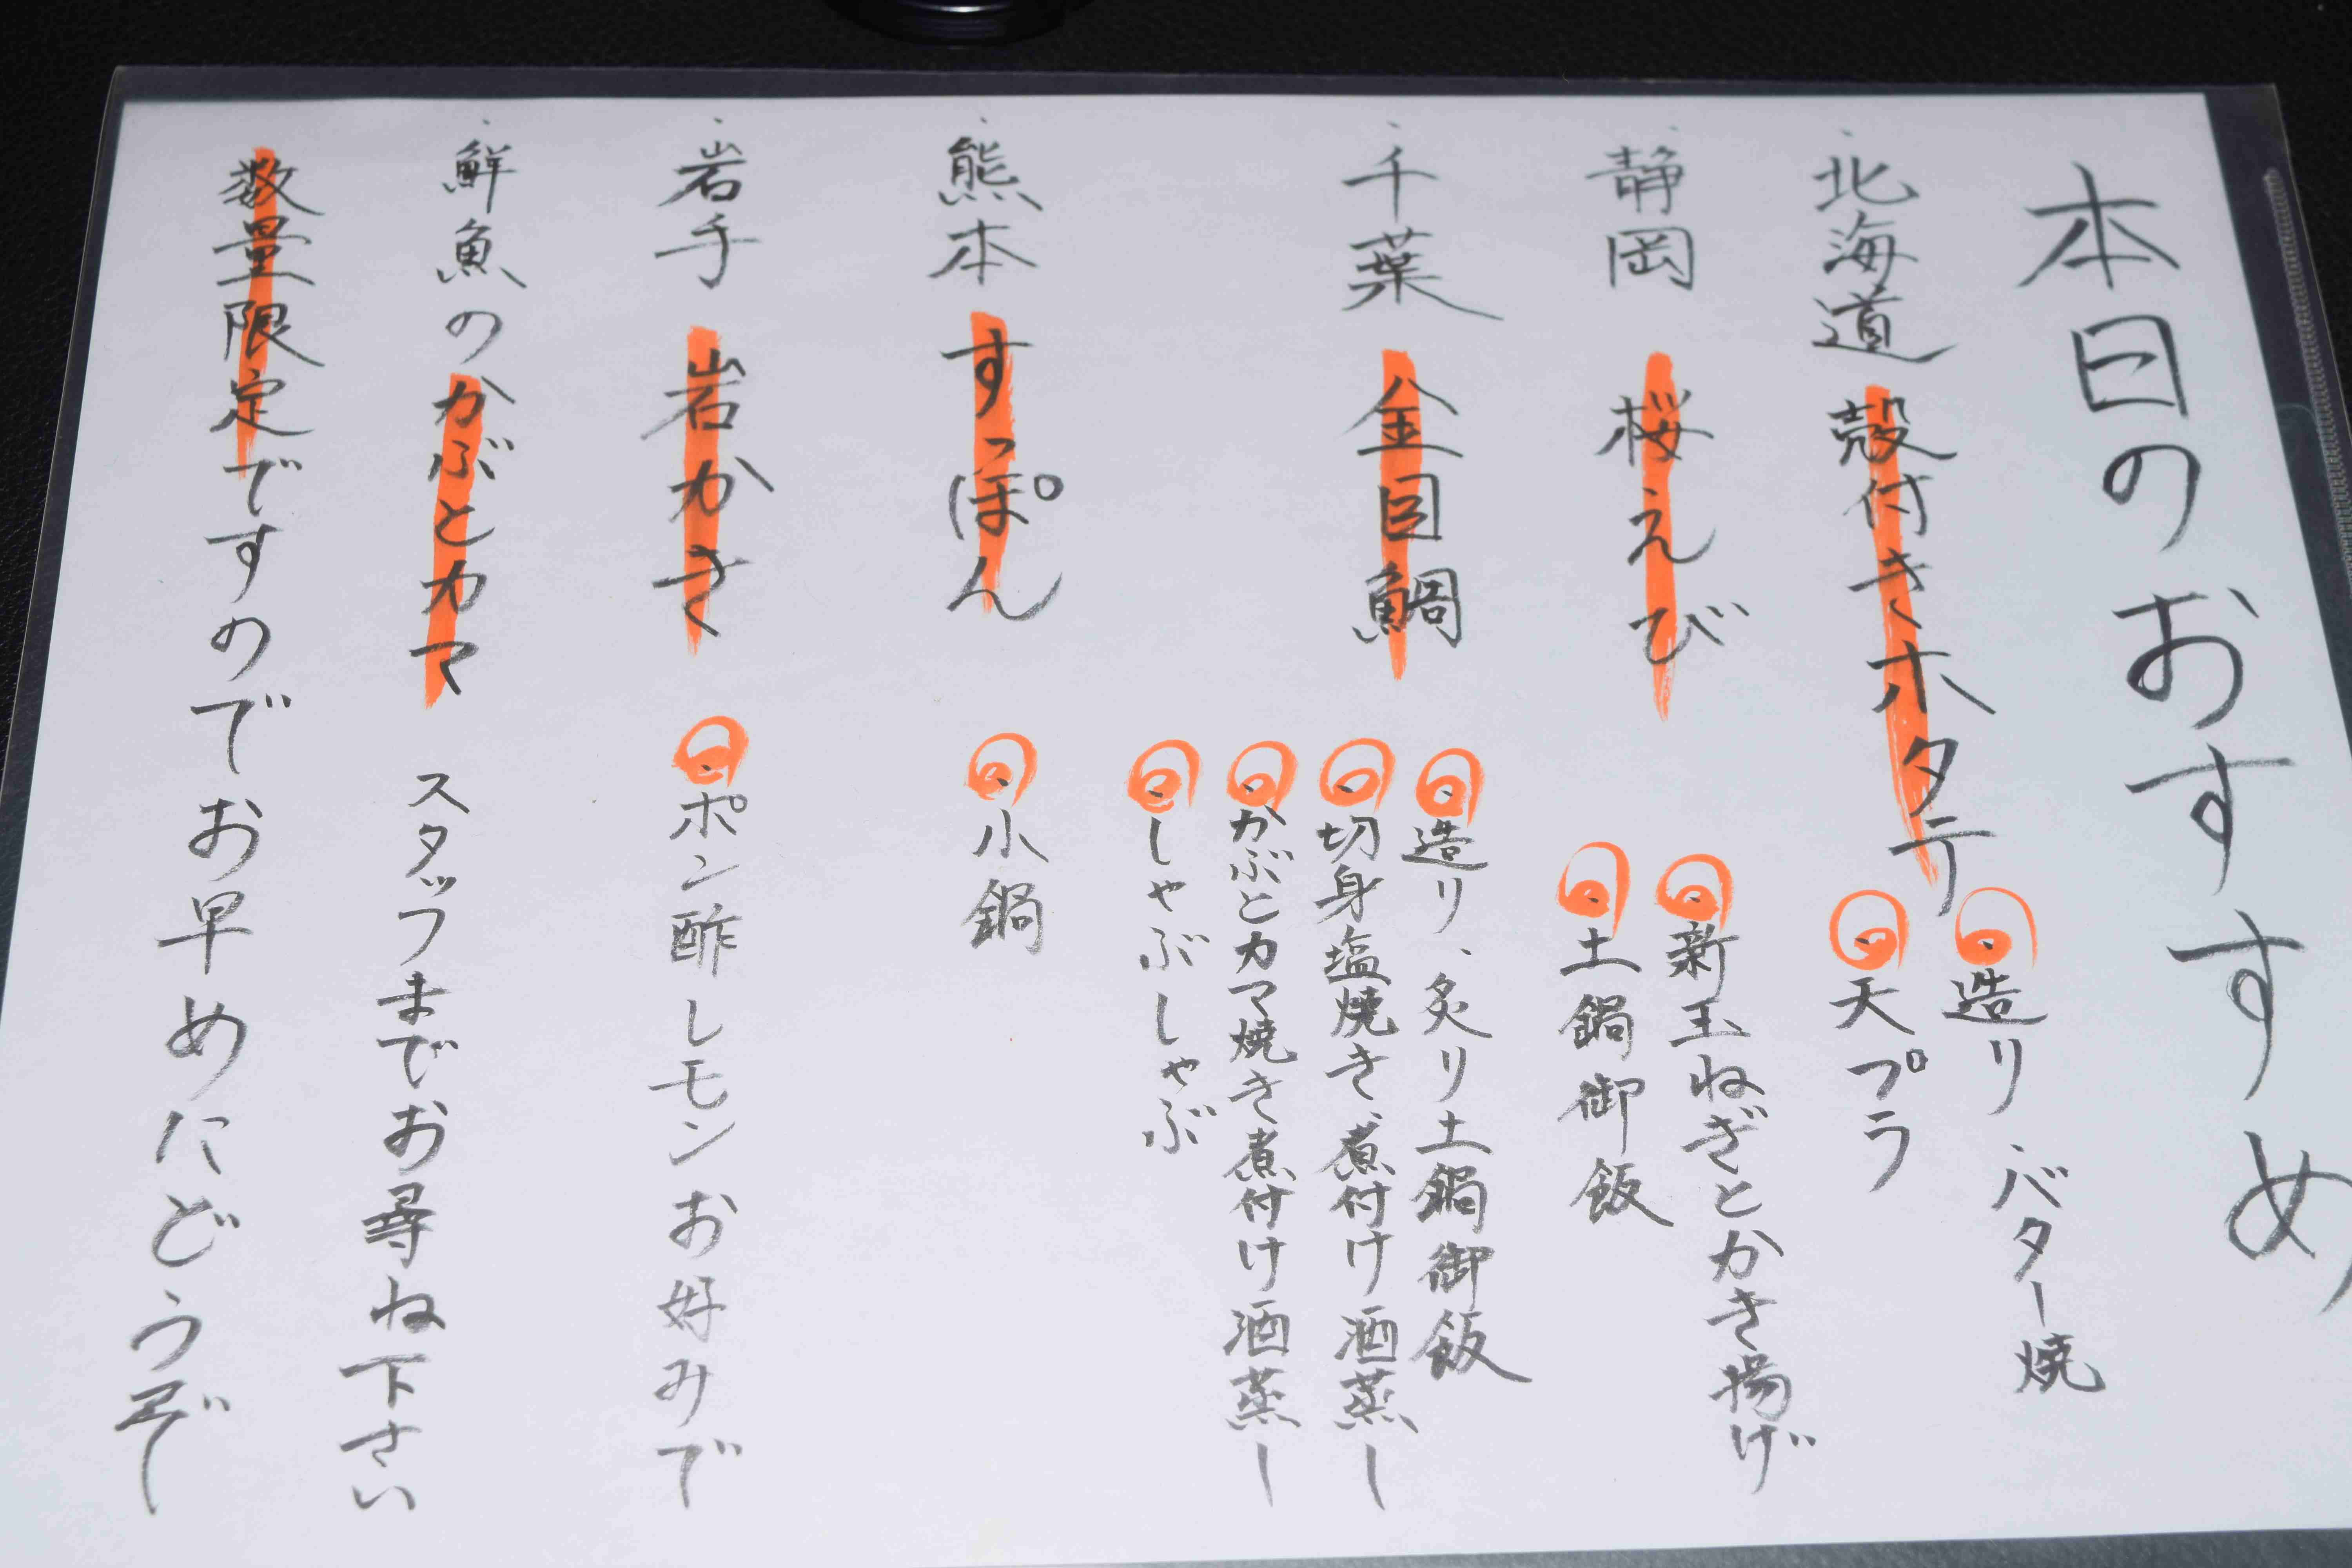 本日のおすすめ
・北海道 殻付きホタテ
・造り、バター焼
・天プラ
・静岡 桜えび
・新玉ねぎとかき揚げ
・土鍋御飯
・千葉 金目鯛
・造り、炙り土鍋御飯
・切身塩焼き、煮付け酒蒸し
・かぶとカマ焼き煮付け酒蒸し
・しゃぶしゃぶ
・熊本 すっぽん
・小鍋
・岩手 岩かき
・ポン酢レモンお好みで
・鮮魚のかぶとカマ スタッフまでお尋ね下さい
数量限定ですのでお早めにどうぞー